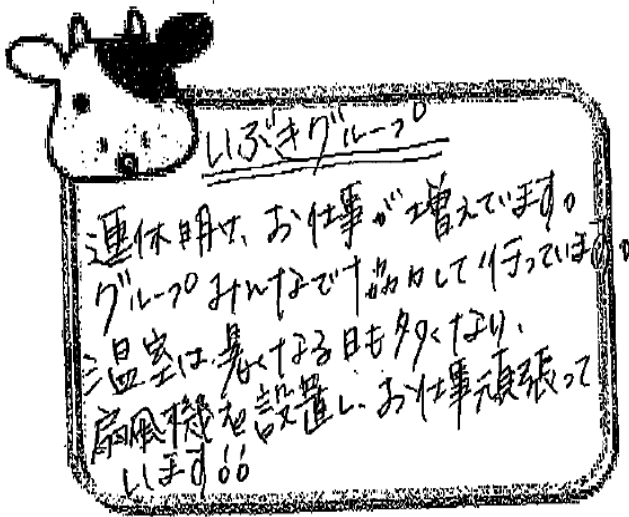 いぶきグループ
連休明け、お仕事が増えています。
グループみんなで協力して行っています。
温室は、暑くなる日も多くなり、
扇風機を設置し、お仕事頑張って
います!!